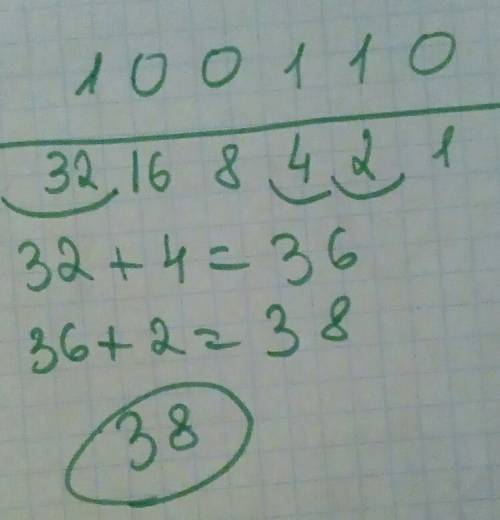 1 0 0 1 1 0
32 16 8 4 2 1
32 + 4 = 36
36 + 2 = 38
38